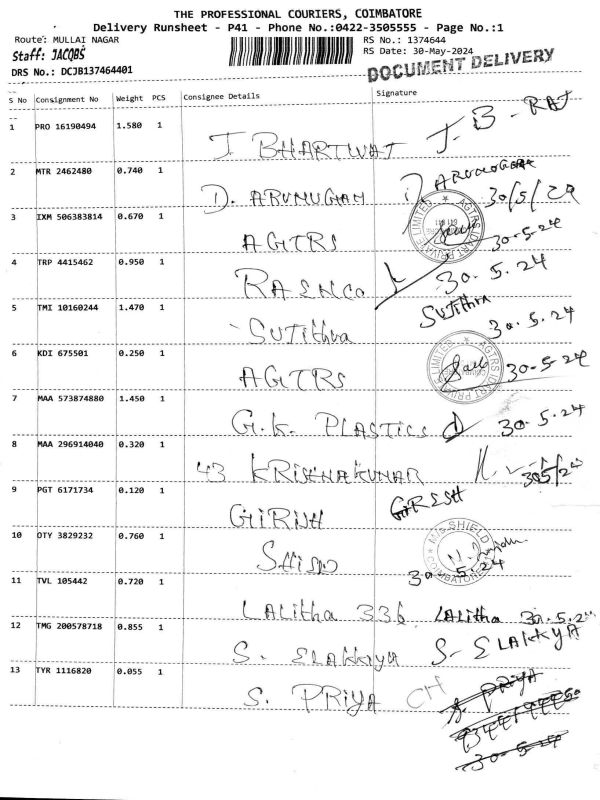 THE PROFESSIONAL COURIERS, COIMBATORE
Delivery Runsheet - P41 - Phone No.:0422-3505555 - Page No.:1
Route: MULLAI NAGAR RS No.: 1374644
Staff: JACOBS RS Date: 30-May-2024
DRS No.: DCJB137464401 DOCUMENT DELIVERY
S No Consignment No Weight PCS Consignee Details Signature
1 PRO 16190494 1.580 1 J BHARTWAJ J. B - RAJ
2 MTR 2462480 0.740 1 D. ARUMUGAM 30/5/24
3 IXM 506383814 0.670 1 AGTRS 30-5-24
4 TRP 4415462 0.950 1 RAENCO 30. 5. 24
5 TMI 10160244 1.470 1 SUJithra SUJithra 30. 5. 24
6 KDI 675501 0.250 1 AGTRS 30-5-24
7 MAA 573874880 1.450 1 G.K. PLASTICS 30. 5. 24
8 MAA 296914040 0.320 1 43 KRISHNAKUMAR
9 PGT 6171734 0.120 1 GIRISH GIRESH
10 OTY 3829232 0.760 1 M/S SHIELD COIMBATORE 30. 5. 24
11 TVL 105442 0.720 1 LALitha 336 LALitha 30. 5. 24
12 TMG 200578718 0.855 1 S. ELAKKIYA S- ELAKKYA
13 TYR 1116820 0.055 1 S. PRIYA CH S. PRIYA
30-5-24